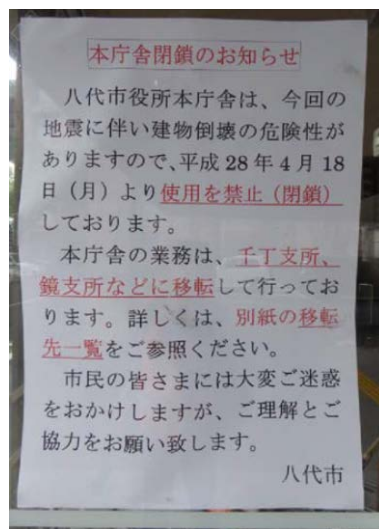 本庁舎閉鎖のお知らせ
八代市役所本庁舎は、今回の
地震に伴い建物倒壊の危険性が
ありますので、平成28年4月18
日（月）より使用を禁止（閉鎖）
しております。
本庁舎の業務は、千丁支所、
鏡支所などに移転して行ってお
ります。詳しくは、別紙の移転
先一覧をご参照ください。
市民の皆さまには大変ご迷惑
をおかけしますが、ご理解とご
協力をお願い致します。
八代市